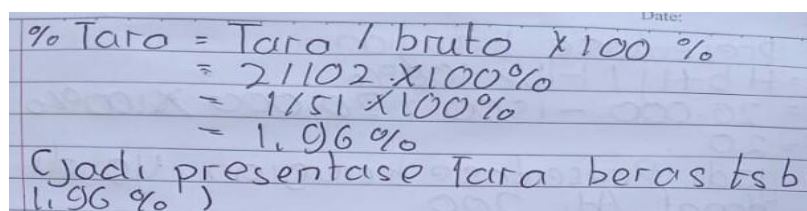 Date:
% Tara = Tara / bruto x 100 %
= 2/102 x 100%
= 1/51 x 100%
= 1.96 %
(jadi presentase Tara beras tsb
1.96 % )